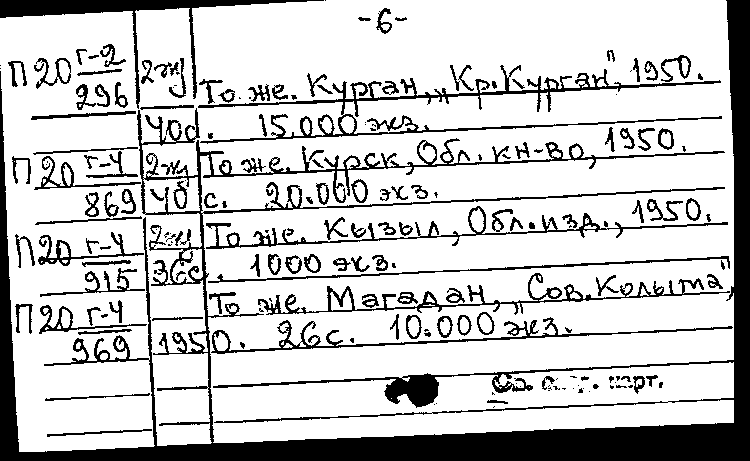 -6-
П20 Г-2/296 2жу То же. Курган, „Кр.Курган", 1950.
40с. 15.000 экз.
П20 Г-4/869 2жу То же. Курск, Обл. кн-во, 1950.
40 с. 20.000 экз.
П20 Г-4/915 2жу То же. Кызыл, Обл.изд., 1950.
36с. 1000 экз.
П20 Г-4/969 То же. Магадан, „Сов.Колыма",
1950. 26с. 10.000 экз.
См. карт.